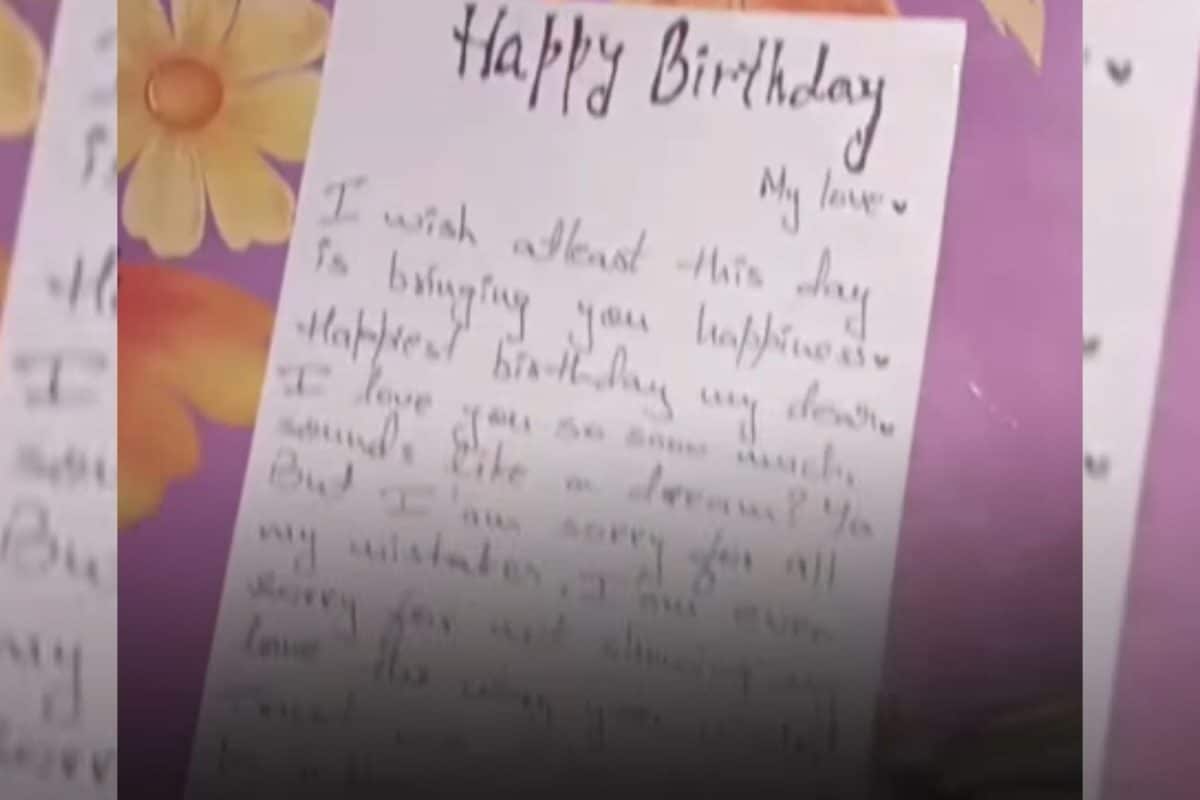 Happy Birthday
My love ♥
I wish atleast this day
is bringing you happiness♥
Happiest birthday my dear♥
I love you so sooo much,
sounds like a dream? Ya
But I am sorry for all
my mistakes, I am even
sorry for not showing my
love the way you